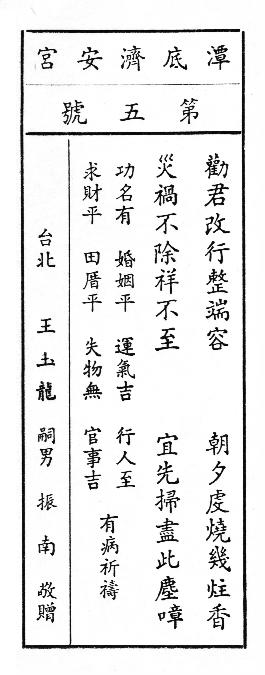 潭底濟安宮
第五號
勸君改行整端容　朝夕虔燒幾炷香
災禍不除祥不至　宜先掃盡此塵嘷
功名有　婚姻平　運氣吉　行人至
求財平　田厝平　失物無　官事吉
有病祈禱
台北　王土龍　嗣男　振南　敬贈